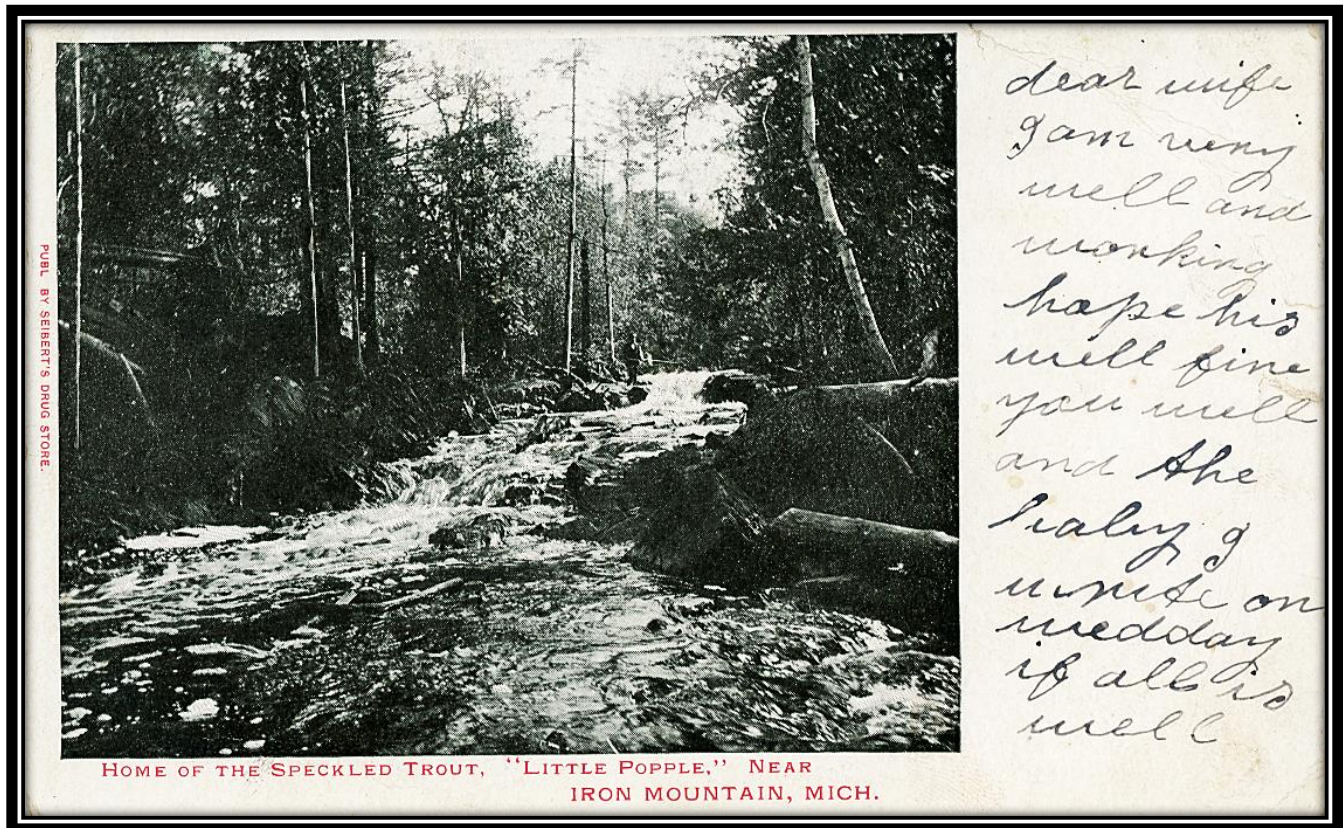 PUBL BY SEIBERT'S DRUG STORE.
HOME OF THE SPECKLED TROUT, "LITTLE POPPLE," NEAR
IRON MOUNTAIN, MICH.
dear wife
I am very
well and
working
hope his
will fine
you well
and the
baby I
write on
wedday
if all is
well